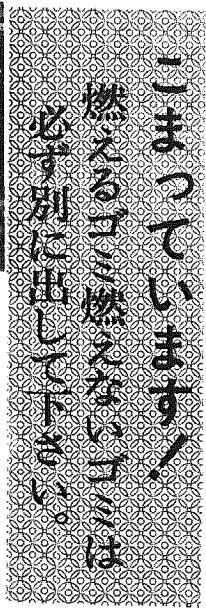 こまっています！
燃えるゴミ燃えないゴミは
必ず別に出して下さい。